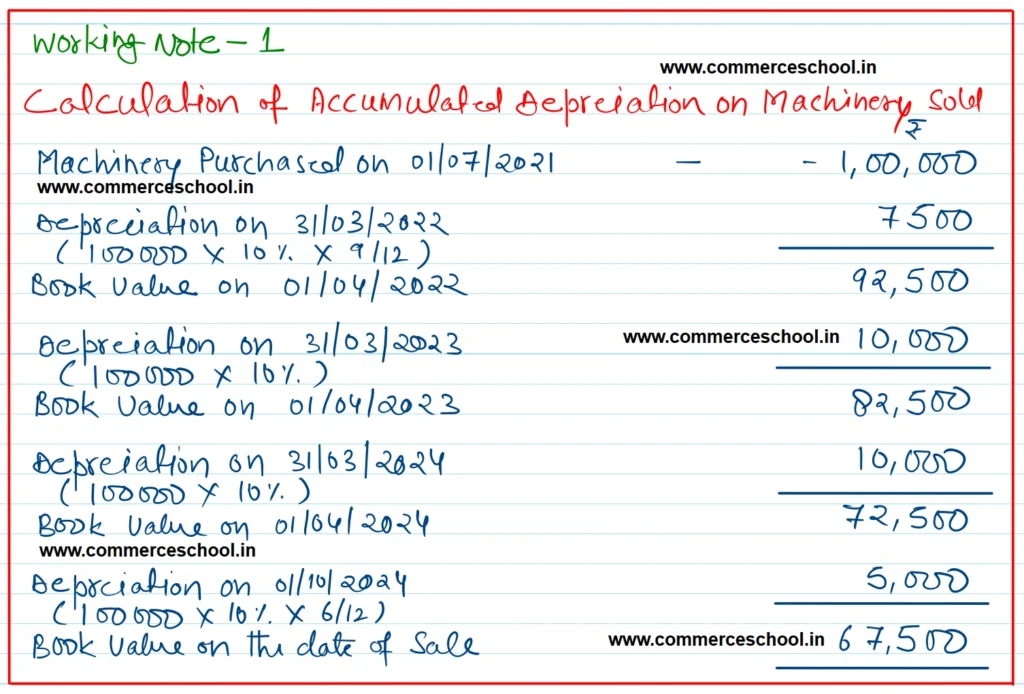 Working Note - 1
www.commerceschool.in
Calculation of Accumulated Depreciation on Machinery Sold
₹
Machinery Purchased on 01/07/2021 — - 1,00,000
www.commerceschool.in
Depreciation on 31/03/2022 7500
(100000 X 10% X 9/12)
Book Value on 01/04/2022 92,500
Depreciation on 31/03/2023 www.commerceschool.in 10,000
(100000 X 10%)
Book Value on 01/04/2023 82,500
Depreciation on 31/03/2024 10,000
(100000 X 10%)
Book Value on 01/04/2024 72,500
www.commerceschool.in
Depreciation on 01/10/2024 5,000
(100000 X 10% X 6/12)
Book Value on the date of Sale www.commerceschool.in 67,500